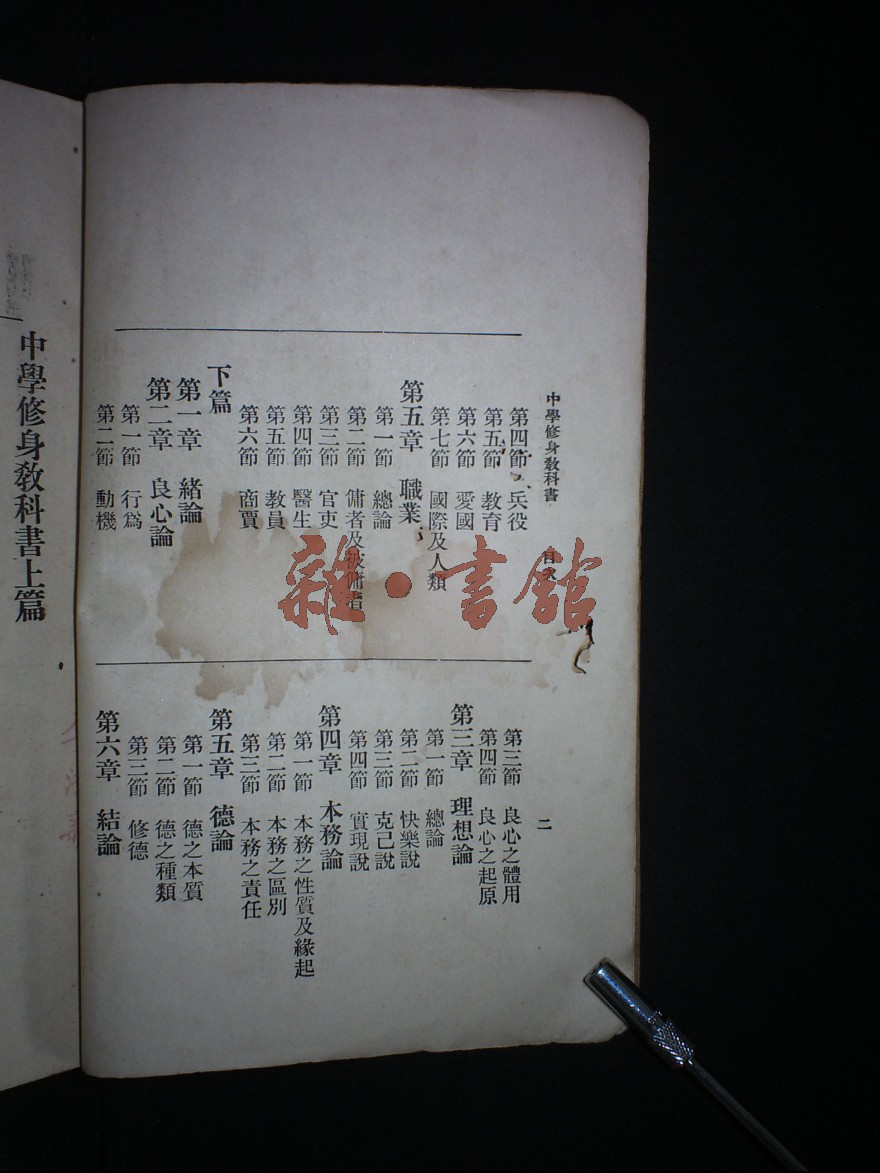 中學修身敎科書　目次　二
第四節　兵役
第五節　教育
第六節　愛國
第七節　國際及人類
第五章　職業
第一節　總論
第二節　傭者及被傭者
第三節　官吏
第四節　醫生
第五節　教員
第六節　商賈
下篇
第一章　緒論
第二章　良心論
第一節　行爲
第二節　動機
第三節　良心之體用
第四節　良心之起原
第三章　理想論
第一節　總論
第二節　快樂說
第三節　克己說
第四節　實現說
第四章　本務論
第一節　本務之性質及緣起
第二節　本務之區別
第三節　本務之責任
第五章　德論
第一節　德之本質
第二節　德之種類
第三節　修德
第六章　結論
中學修身敎科書上篇
雜·書館